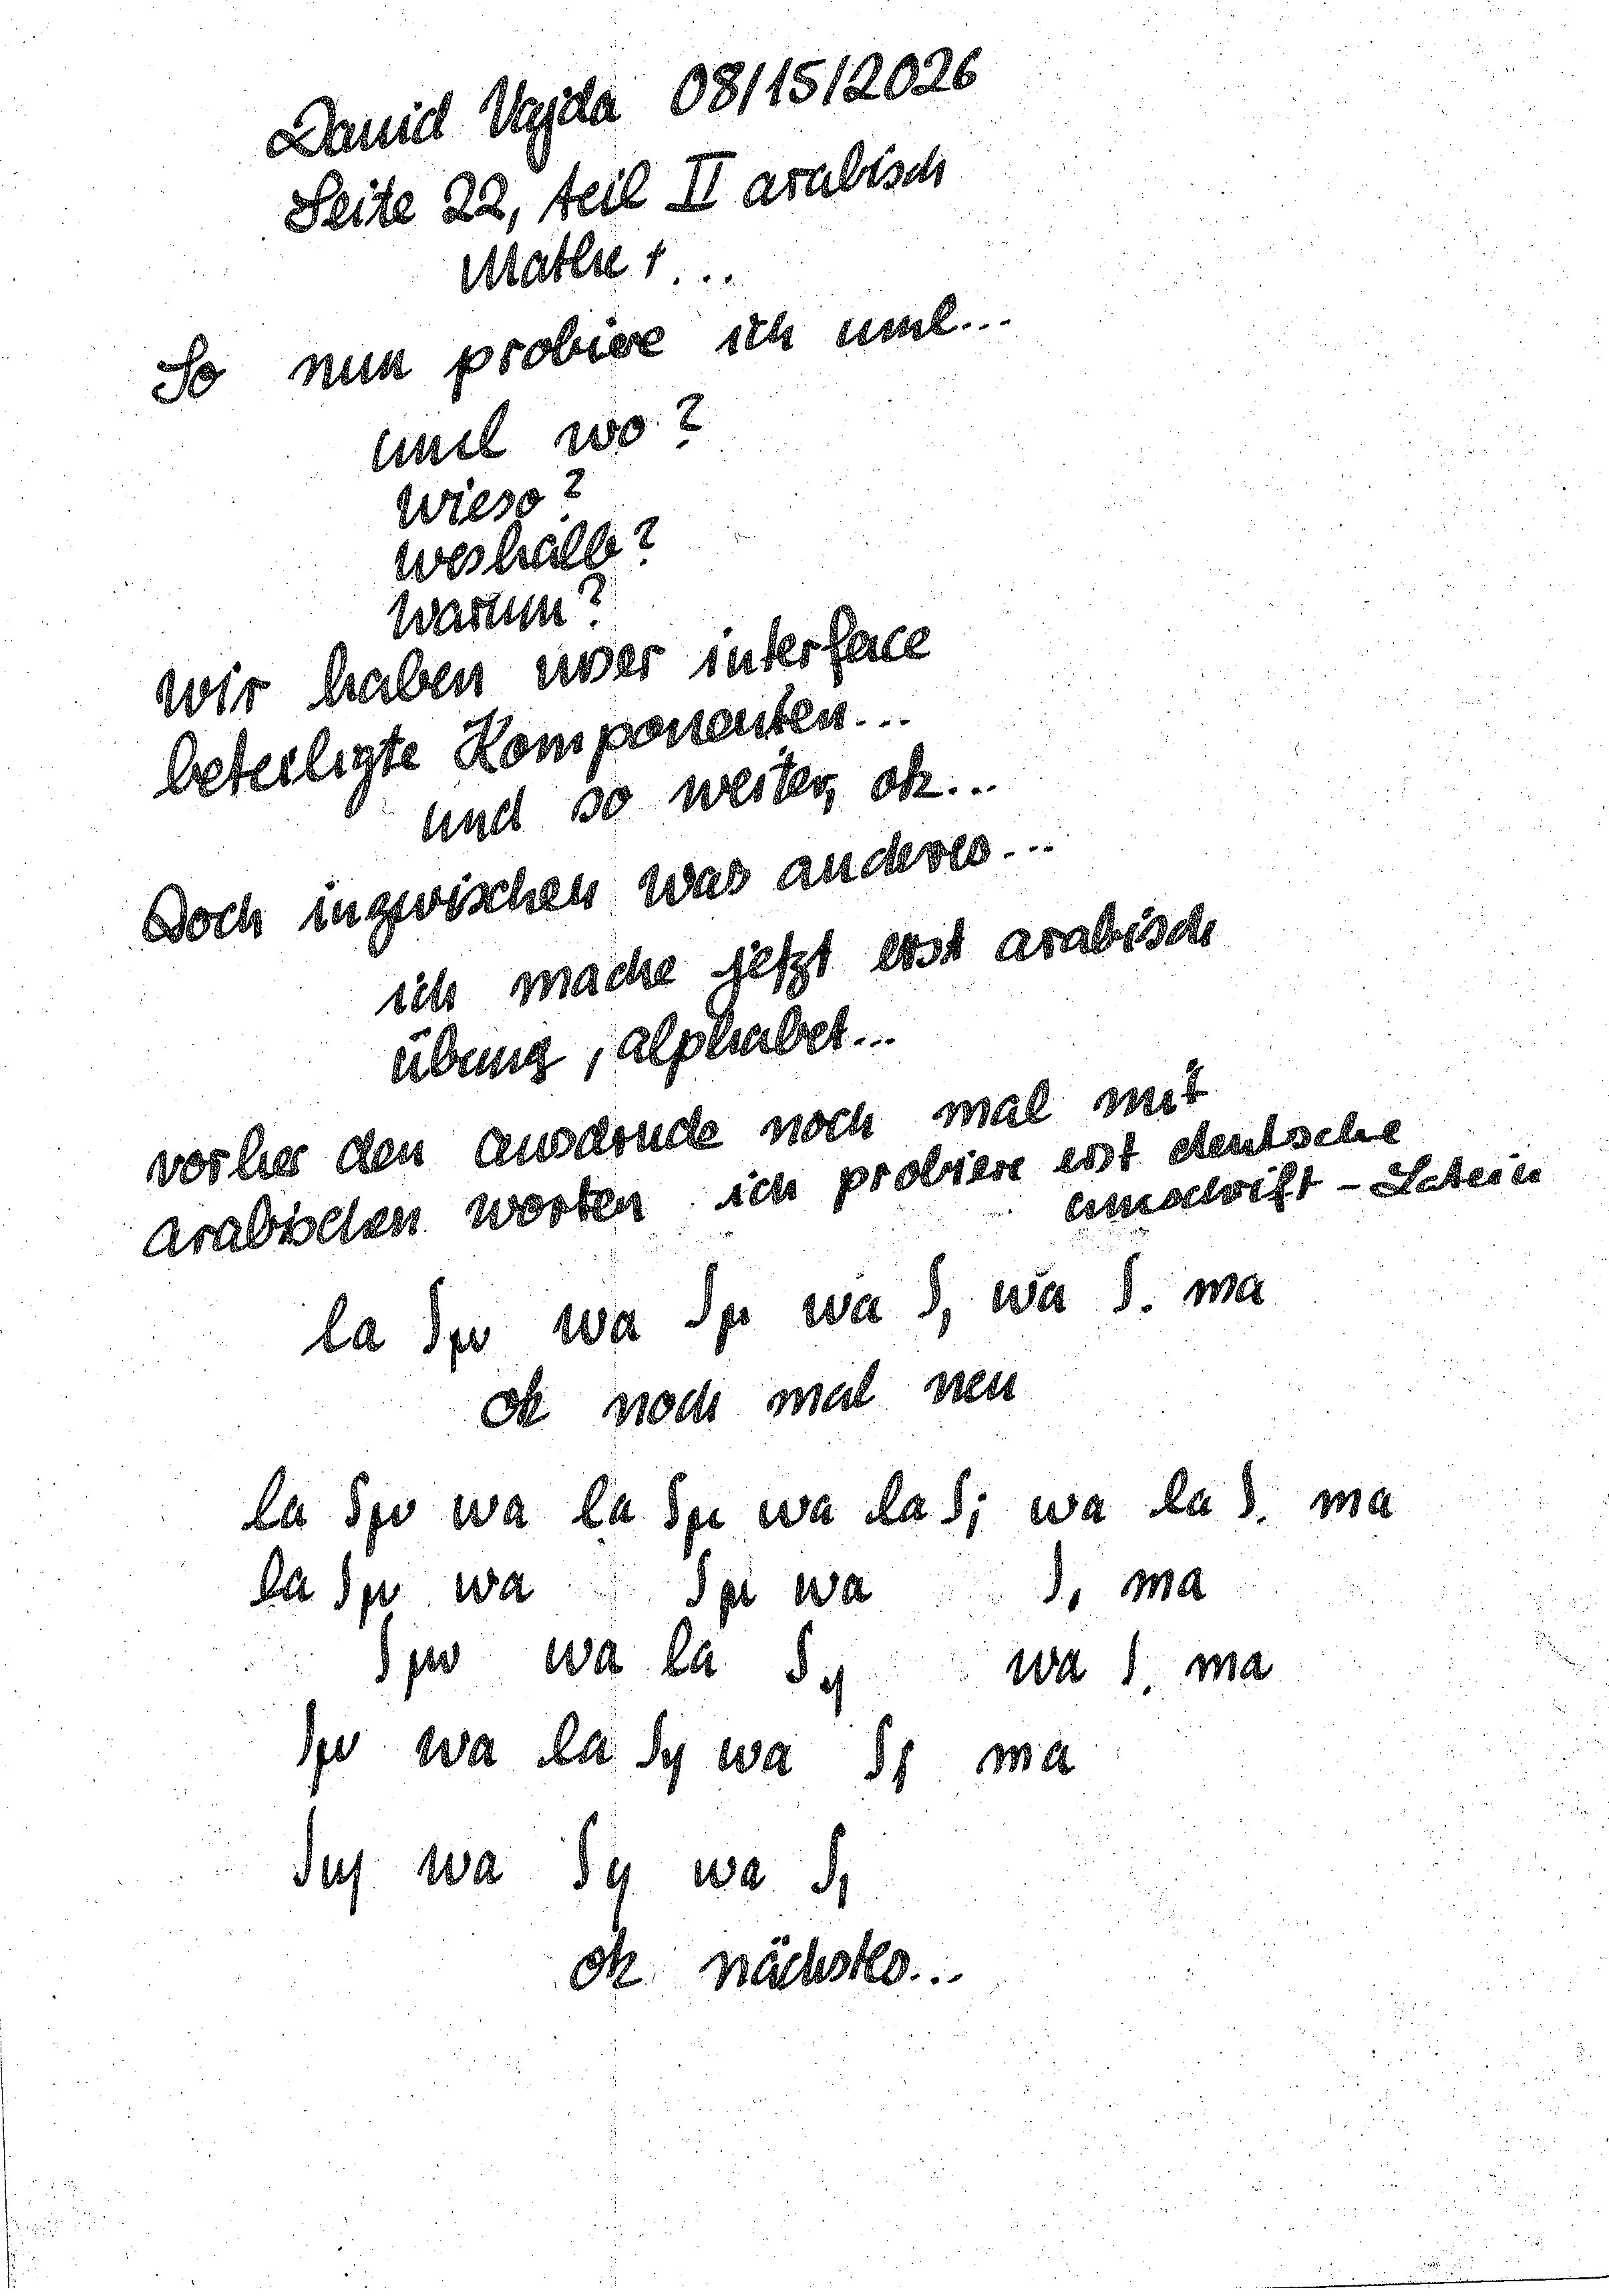 David Vajda 08/15/2026
Seite 22, teil II arabisch
Mathe + ...
So nun probiere ich uml...
uml wo?
wieso?
weshalb?
warum?
wir haben user interface
beteiligte Komponenten...
und so weiter, ok...
Doch inzwischen was anderes...
ich mache jetzt erst arabisch
übung, alphabet...
vorher den ausdrude noch mal mit
arabischen worten ich probiere erst deutsche
umschrift - Latein
la wa wa wa ma
ok noch mal neu
la wa la wa la wa la ma
la wa wa ma
wa la wa ma
wa la wa ma
wa wa
ok nächstes...